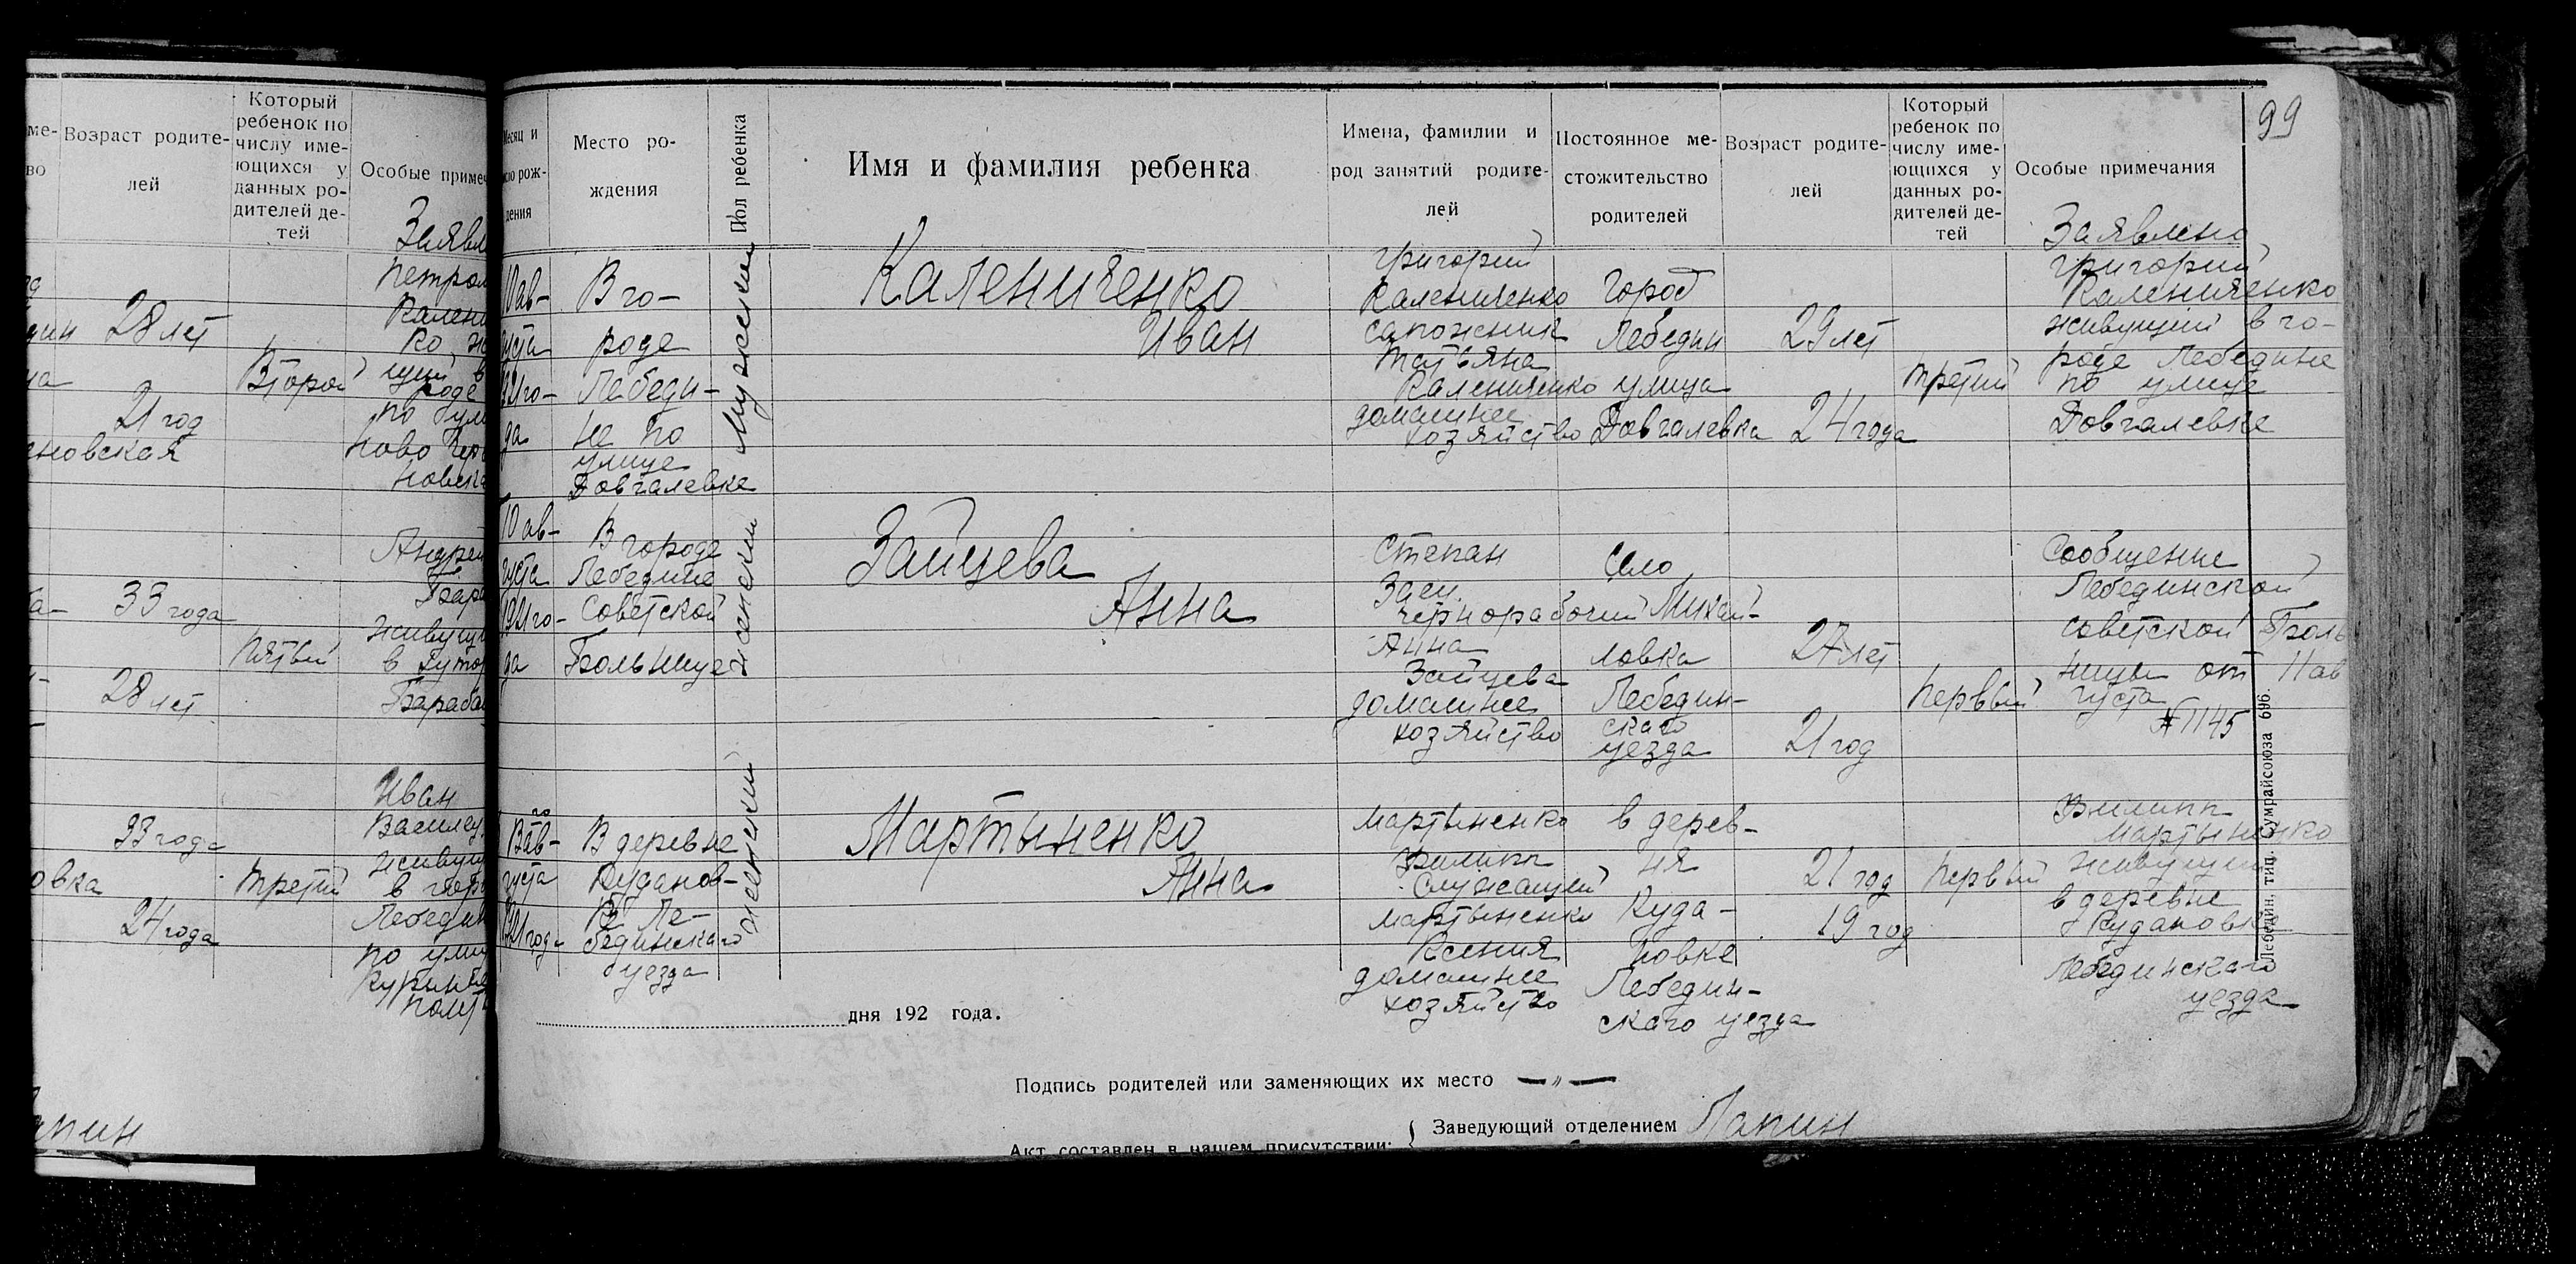 Возраст родите-
лей
Который
ребенок по
числу име-
ющихся у
данных ро-
дителей де-
тей
Особые
28 лет
21 год
Второй
33 года
28 лет
Пятый
33 года
24 года
третий
Иван
99
Месяц и
Место ро-
ждения
Пол ребенка
Имя и фамилия ребенка
Имена, фамилии и
род занятий родите-
лей
Постоянное ме-
стожительство
родителей
Возраст родите-
лей
Который
ребенок по
числу име-
ющихся у
данных ро-
дителей де-
тей
Особые примечания
10 ав-
густа
1921 го-
да
В го-
роде
Лебеди-
не по
улице
Довгалевке
Мужеский
Калениченко
Иван
Григорий
Калениченко
сапожник
Татьяна
Калениченко
домашнее
хозяйство
город
Лебедин
улица
Довгалевка
29 лет
24 года
третий
Заявлено
Григорий
Калениченко
живущий в го-
роде Лебедине
по улице
Довгалевке
10 ав-
густа
1921 го-
да
В городе
Лебедине
Советской
Больнице
женский
Зайцева
Анна
Степан
Заец
чернорабочий
Анна
Зайцева
домашнее
хозяйство
Село
Михай-
ловка
Лебедин-
скаго
уезда
27 лет
21 год
Первый
Сообщение
Лебединской
советской Боль
ницы от 11 ав
густа
№ 1145
ав-
густа
1921 года
В деревне
Кудановке
Ле-
бединскаго
уезда
женский
Мартыненко
Анна
Мартыненко
Филипп
служащий
Мартыненко
Ксения
домашнее
хозяйство
в дерев-
ня
Куда-
новке
Лебедин-
скаго уезда
21 год
19 год
Первый
Филипп
Мартыненко
живущий
в деревне
Кудановке
Лебединскаго
уезда
Лебедин. тип. Сумрайсоюза 696.
дня 192 года.
Подпись родителей или заменяющих их место —„—
Акт составлен в нашем присутствии:
Заведующий отделением Лапин